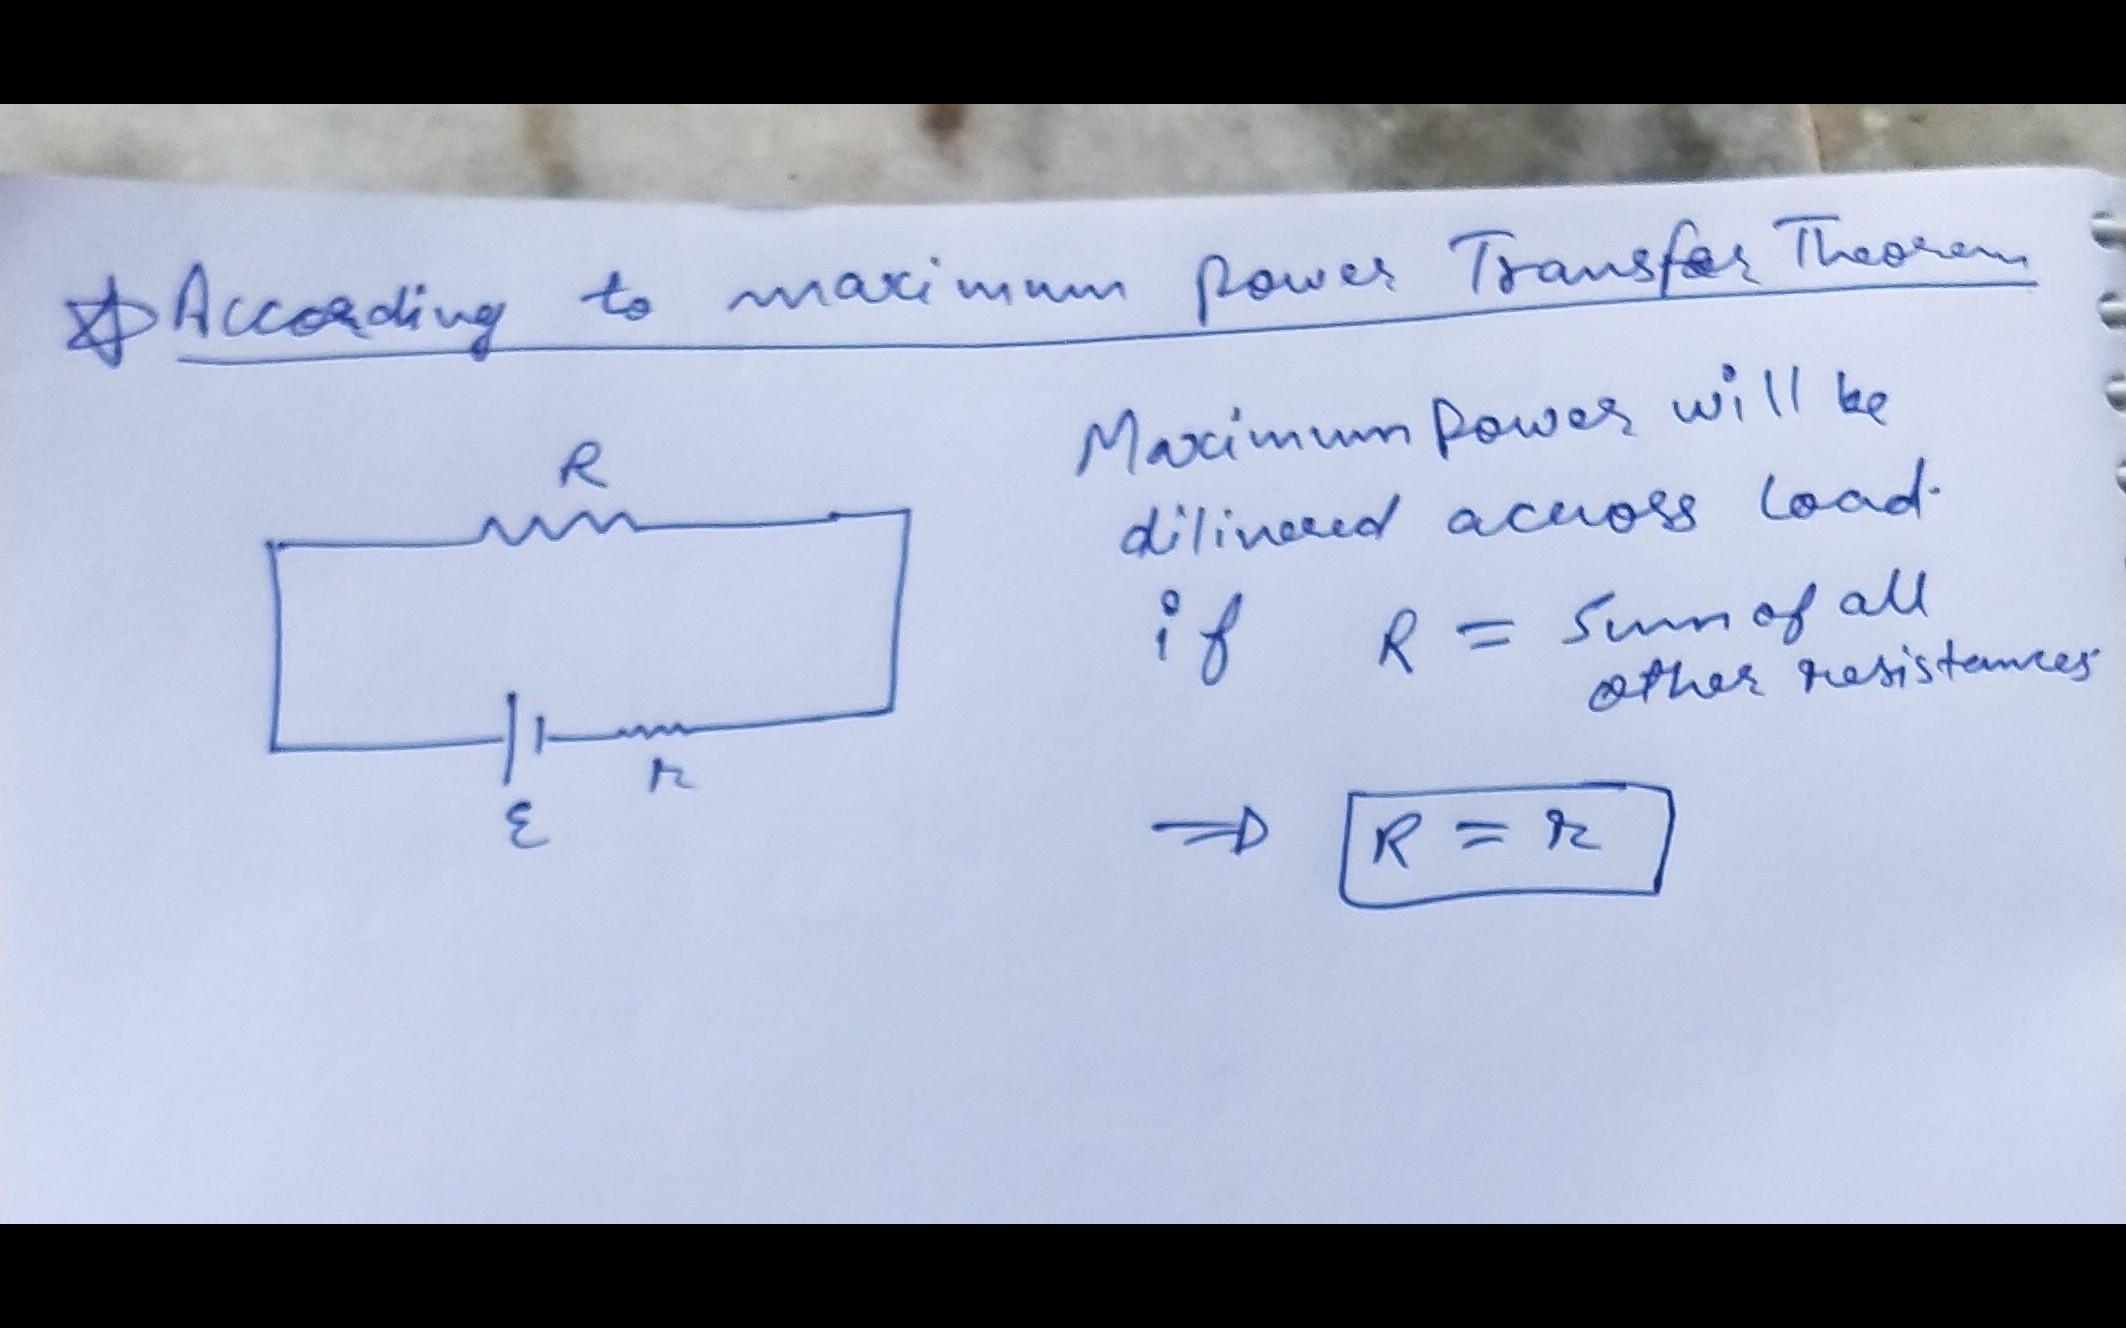 According to maximum power Transfer Theorem
R
Maximum Power will be
dilivered across Load.
if R = Sum of all
other resistances
r
ε
⇒ R = r